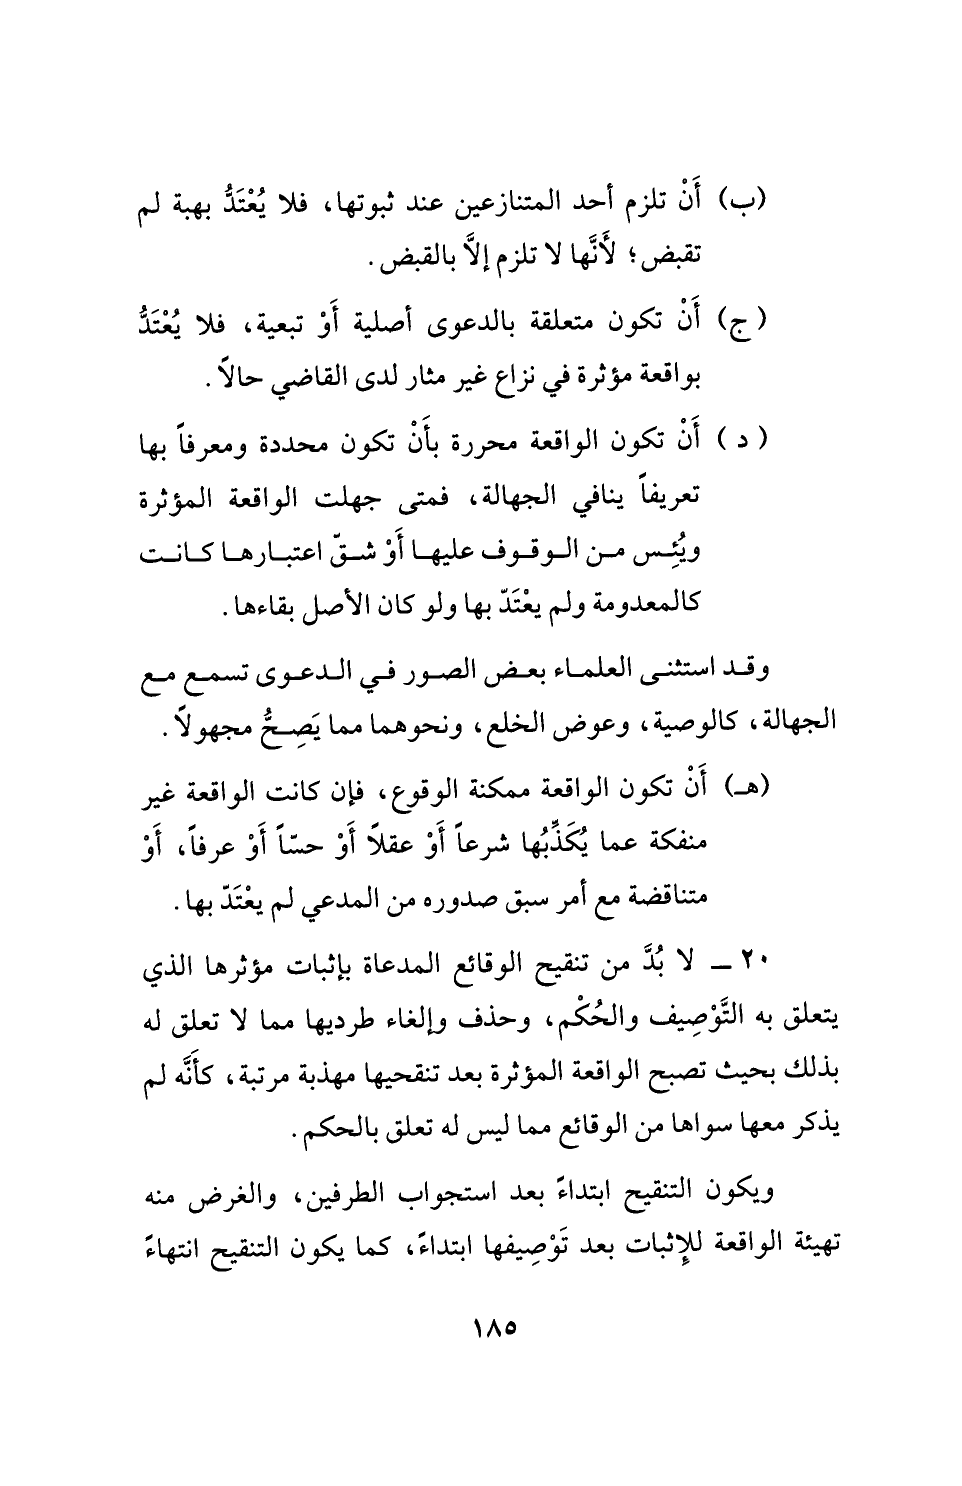 (ب) أَنْ تلزم أحد المتنازعين عند ثبوتها، فلا يُعْتَدُّ بهبة لم
تقبض؛ لأَنَّها لا تلزم إلاَّ بالقبض.
(ج) أَنْ تكون متعلقة بالدعوى أصلية أَوْ تبعية، فلا يُعْتَدُّ
بواقعة مؤثرة في نزاع غير مثار لدى القاضي حالاً.
(د) أَنْ تكون الواقعة محررة بأَنْ تكون محددة ومعرفاً بها
تعريفاً ينافي الجهالة، فمتى جهلت الواقعة المؤثرة
ويُئِس من الوقوف عليها أَوْ شقّ اعتبارها كانت
كالمعدومة ولم يعْتَدّ بها ولو كان الأصل بقاءها.
وقد استثنى العلماء بعض الصور في الدعوى تسمع مع
الجهالة، كالوصية، وعوض الخلع، ونحوهما مما يَصِحُّ مجهولاً.
(هـ) أَنْ تكون الواقعة ممكنة الوقوع، فإن كانت الواقعة غير
منفكة عما يُكَذِّبُها شرعاً أَوْ عقلاً أَوْ حسّاً أَوْ عرفاً، أَوْ
متناقضة مع أمر سبق صدوره من المدعي لم يعْتَدّ بها.
٢٠ ــ لا بُدَّ من تنقيح الوقائع المدعاة بإثبات مؤثرها الذي
يتعلق به التَّوْصِيف والحُكْم، وحذف وإلغاء طرديها مما لا تعلق له
بذلك بحيث تصبح الواقعة المؤثرة بعد تنقحيها مهذبة مرتبة، كأَنَّه لم
يذكر معها سواها من الوقائع مما ليس له تعلق بالحكم.
ويكون التنقيح ابتداءً بعد استجواب الطرفين، والغرض منه
تهيئة الواقعة للإِثبات بعد تَوْصِيفها ابتداءً، كما يكون التنقيح انتهاءً
١٨٥